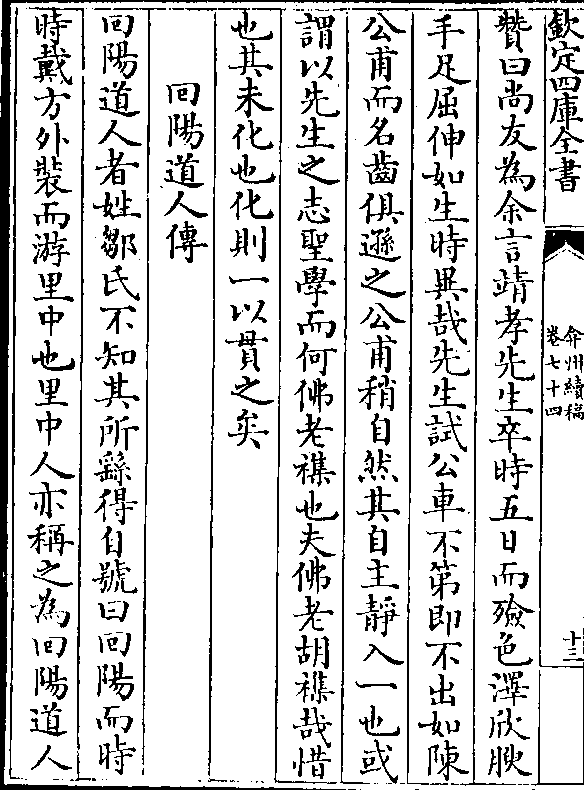 欽定四庫全書
弇州續稿
卷七十四
十三
贊曰尚友為余言靖孝先生卒時五日而殮色澤欣腴
手足屈伸如生時異哉先生試公車不第即不出如陳
公甫而名齒俱遜之公甫稍自然其自主靜入一也或
謂以先生之志聖學而何佛老襍也夫佛老胡襍哉惜
也其未化也化則一以貫之矣
回陽道人傳
回陽道人者姓鄒氏不知其所繇得自號曰回陽而時
時戴方外裝而游里中也里中人亦稱之為回陽道人